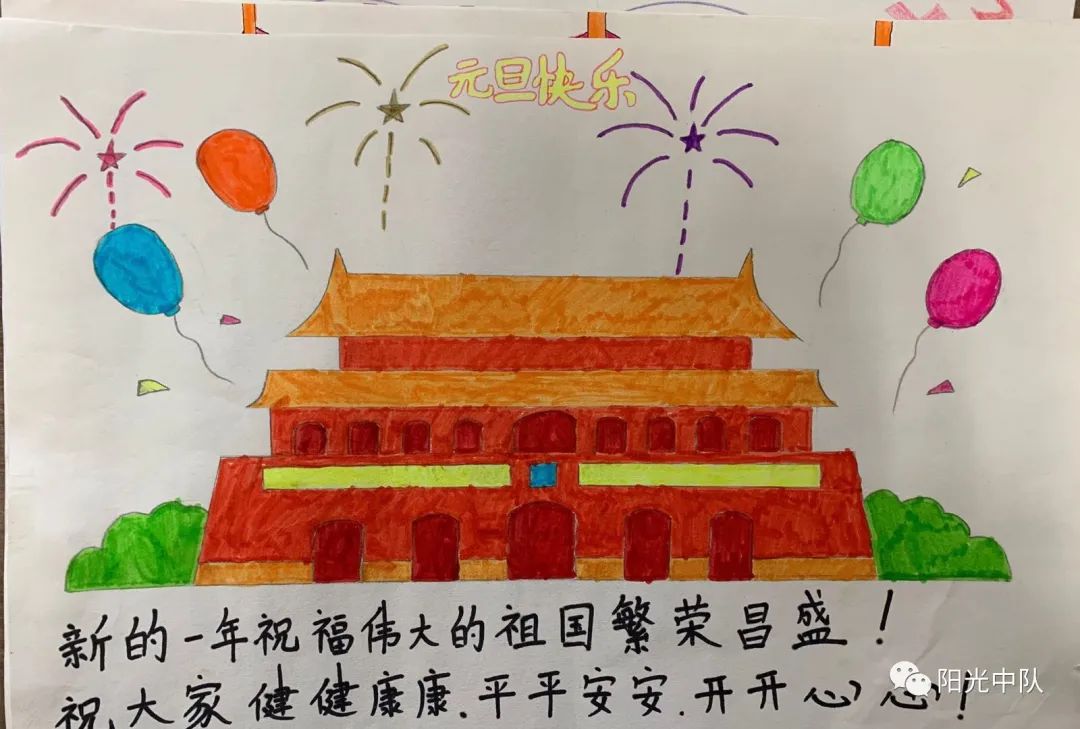 元旦快乐
新的一年祝福伟大的祖国繁荣昌盛！
祝大家健健康康.平平安安.开开心心！
阳光中队